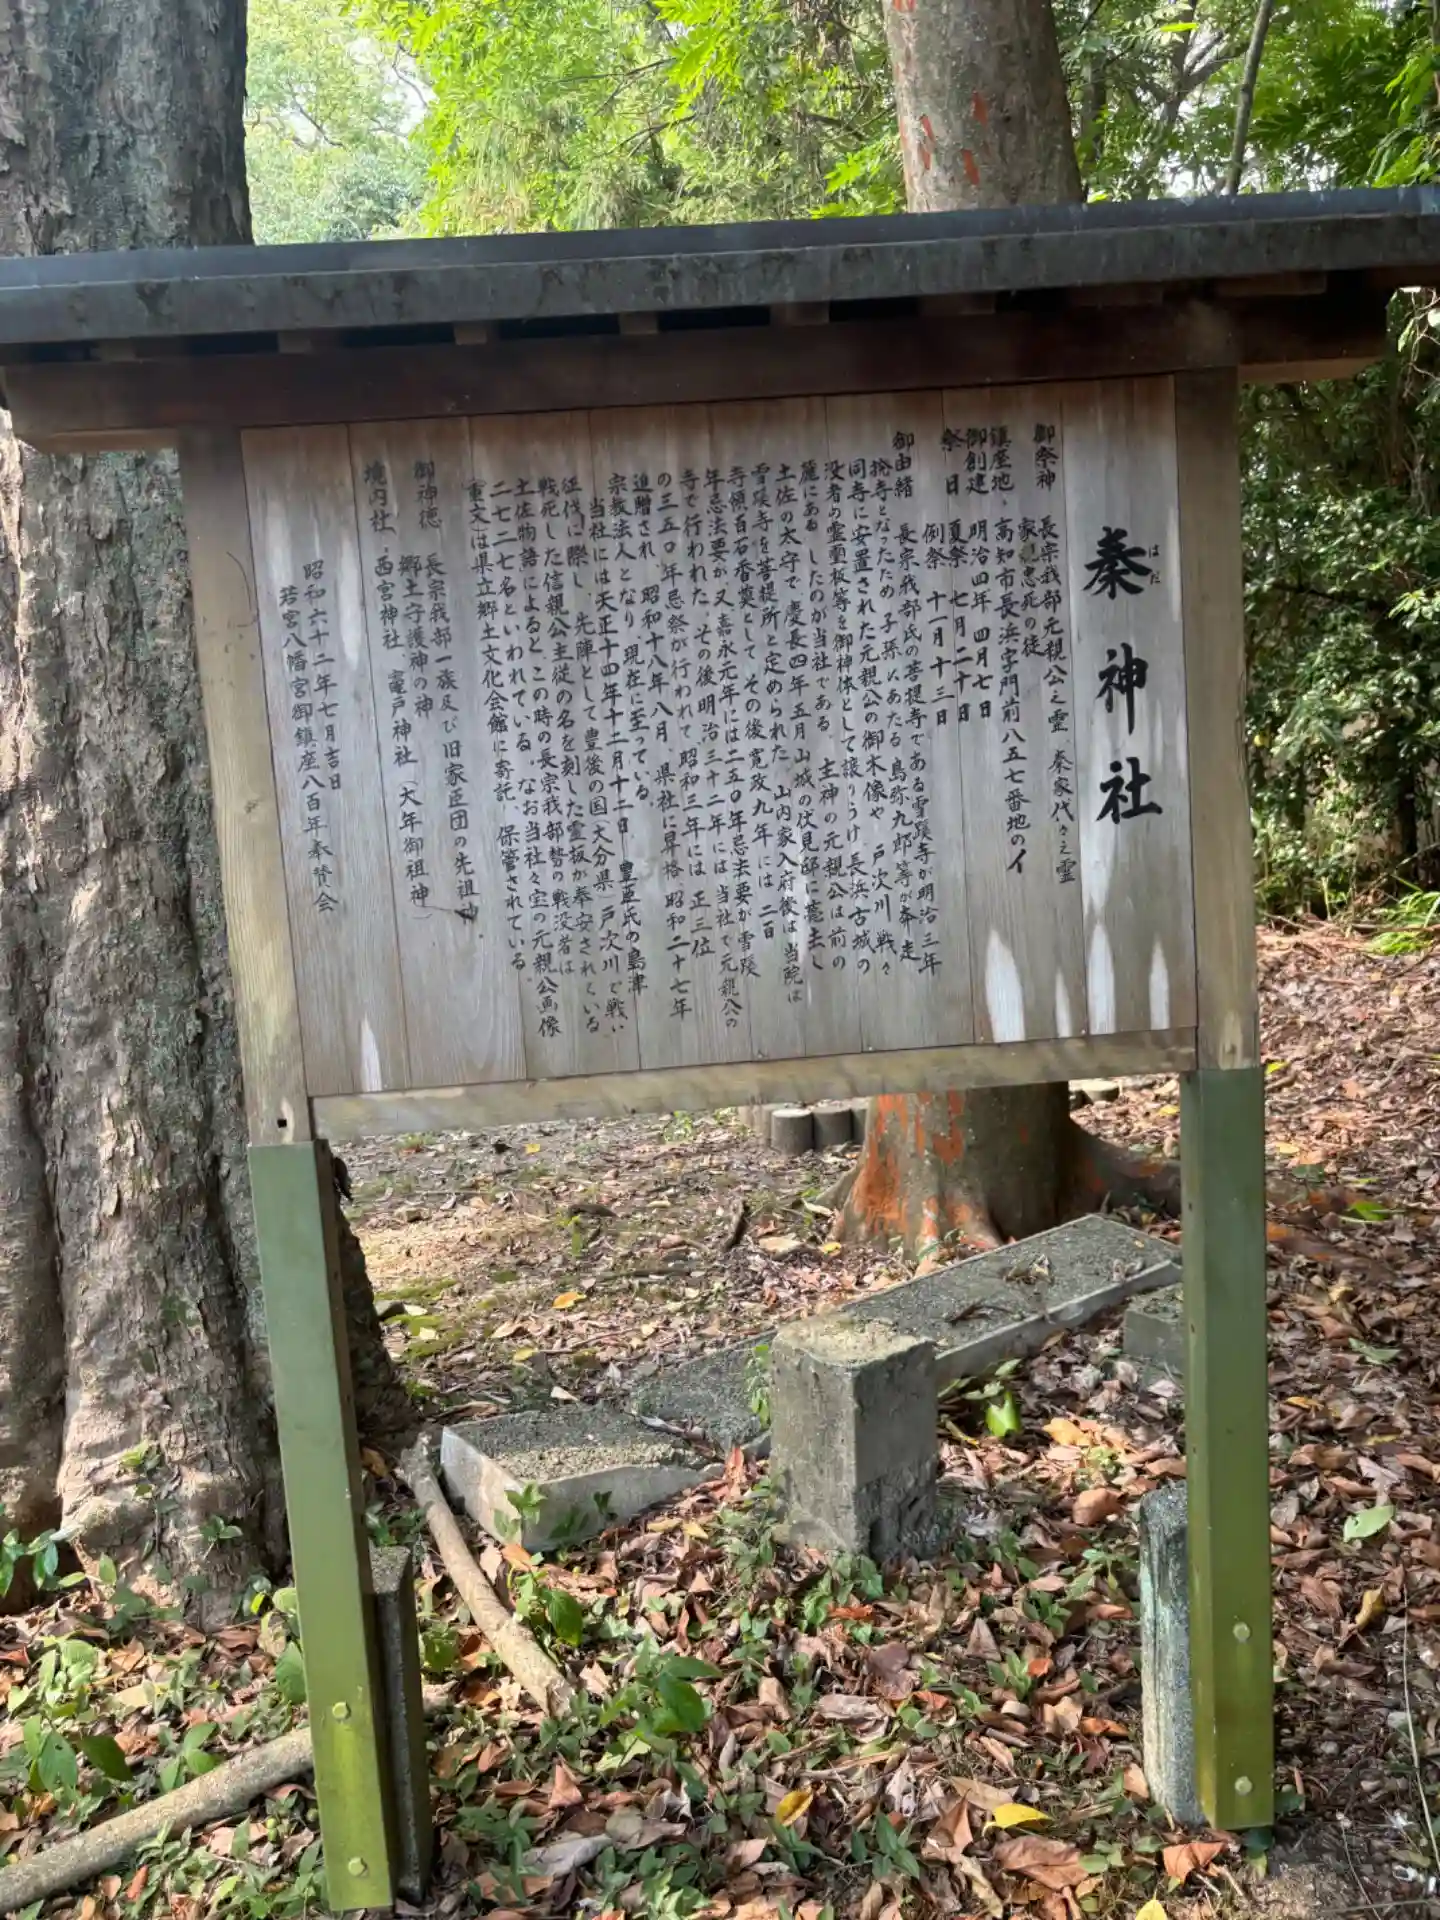 秦神社
はだ
御祭神 長宗我部元親公之霊、秦家代々之霊
家臣忠死の徒
鎮座地 高知市長浜字門前八五七番地のイ
御創建 明治四年四月七日
祭日 夏祭 七月二十日
例祭 十一月十三日
御由緒 長宗我部氏の菩提寺である雪蹊寺が明治三年
廃寺となったため子孫にあたる島弥九郎等が奔走
同寺に安置された元親公の御木像や、戸次川戦々
没者の霊重板等を御神体として譲りうけ長浜古城の
麓にある したのが当社である。主神の元親公は前の
土佐の太守で、慶長四年五月山城の伏見邸に薨去し
雪蹊寺を菩提所と定められた。山内家入府後は当院は
寺領百石香奠として、その後寛政九年には二百
年忌法要が又嘉永元年には二五〇年忌法要が雪蹊
寺で行われた。その後明治三十二年には当社で元親公の
の三五〇年忌祭が行われて昭和三年には正三位
追贈され、昭和十八年八月、県社に昇格、昭和二十七年
宗教法人となり、現在に至っている。
当社には天正十四年十二月十二日、豊臣氏の島津
征伐に際し、先陣として豊後の国(大分県)戸次川で戦い
戦死した信親公主従の名を刻した霊板が奉安されている
土佐物語によると、この時の長宗我部勢の戦没者は
二七二七名といわれている。なお当社々宝の元親公画像
(重文)は県立郷土文化会館に寄託、保管されている。
御神徳 長宗我部一族及び旧家臣団の先祖神
郷土守護神の神
境内社 西宮神社 竈戸神社(大年御祖神)
昭和六十二年七月吉日
若宮八幡宮御鎮座八百年奉賛会